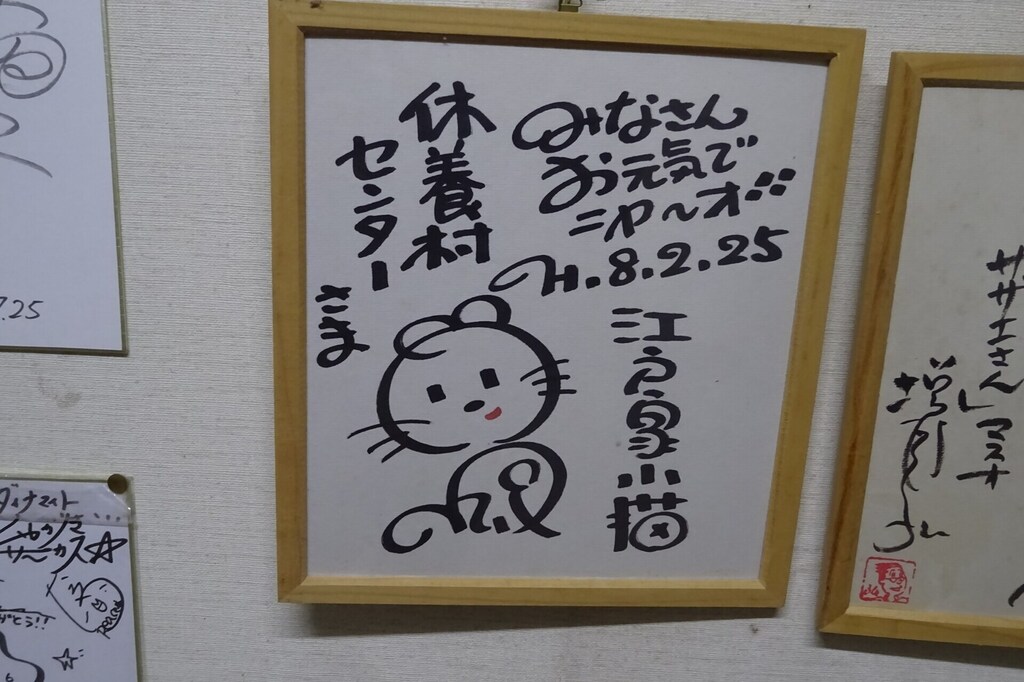 みなさん
お元気で
ニャ〜オ
H.8.2.25
休養村
センター
さま
江戸家小猫
7.25
サザエさん」マスオ
増岡弘
ダイナマイト
サーカス☆